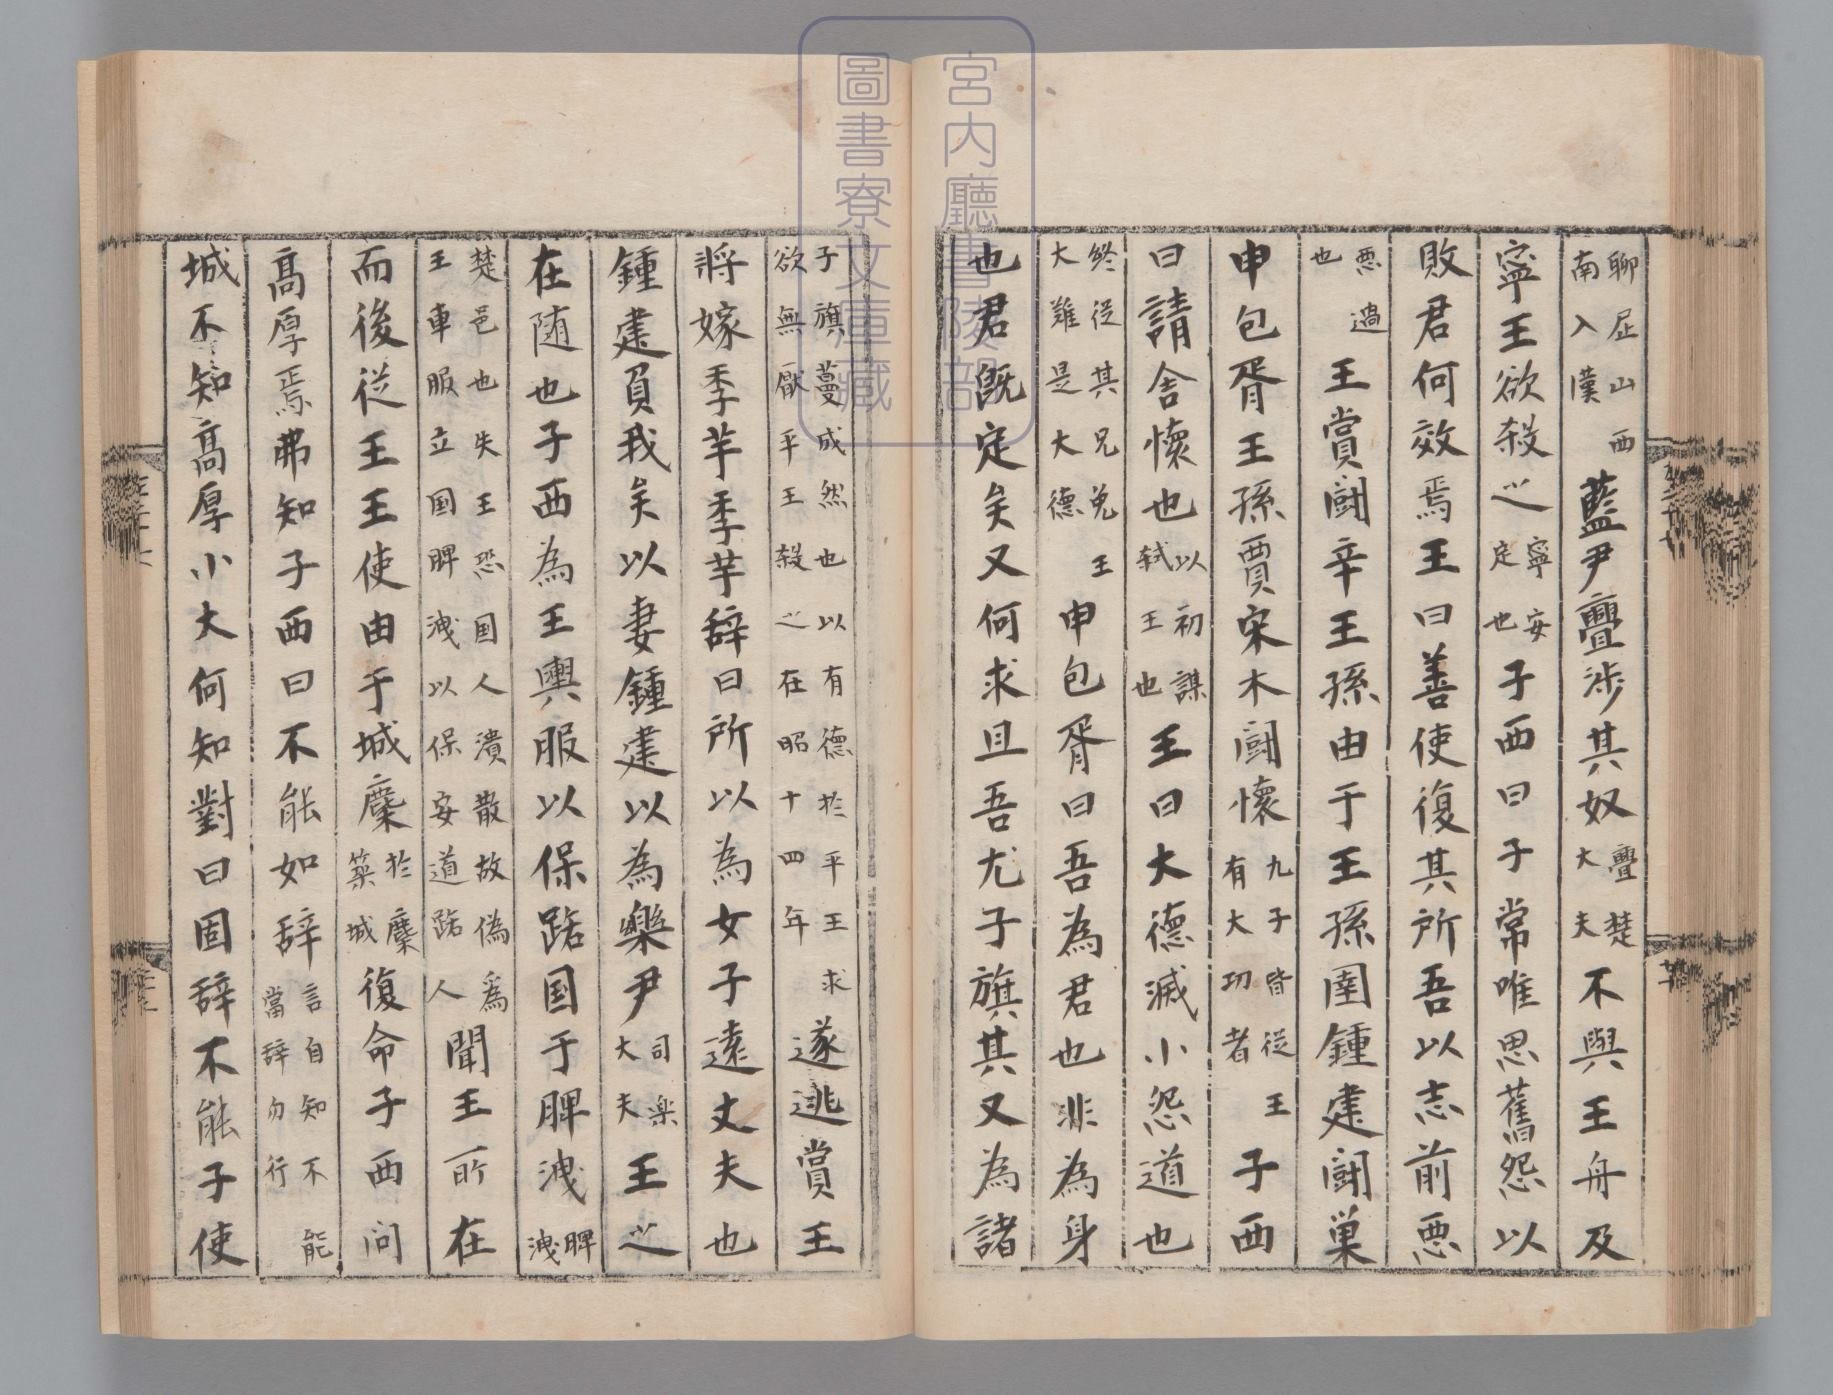 聊屈山西南入漢藍尹亹涉其奴亹楚大夫不與王舟及
寧王欲殺之寧安定也子西曰子常唯思舊怨以
敗君何效焉王曰善使復其所吾以志前悪
悪過也王賞鬪辛王孫由于王孫圉鍾建鬪巣
申包胥王孫賈宋木鬪懷九子皆從王有大功者子西
曰請舍懷也以初謀弒王也王曰大德滅小怨道也
終從其兄免王大難是大德申包胥曰吾為君也非為身
也君既定矣又何求且吾尤子旗其又為諸
子旗蔓成然也以有德於平王求欲無厭平王殺之在昭十四年遂逃賞王
將嫁季芊季芊辞曰所以為女子遠丈夫也
鍾建負我矣以妻鍾建以為樂尹司楽大夫王之
在随也子西為王輿服以保路国于脾洩脾洩
楚邑也失王恐国人潰散故偽為王車服立国脾洩以保安道路人聞王所在
而後從王王使由于城麇於麇築城復命子西問
高厚焉弗知子西曰不能如辞言自知不能當辞勿行
城不知高厚小大何知對曰固辞不能子使
宮内廳書陵部
圖書寮文庫藏